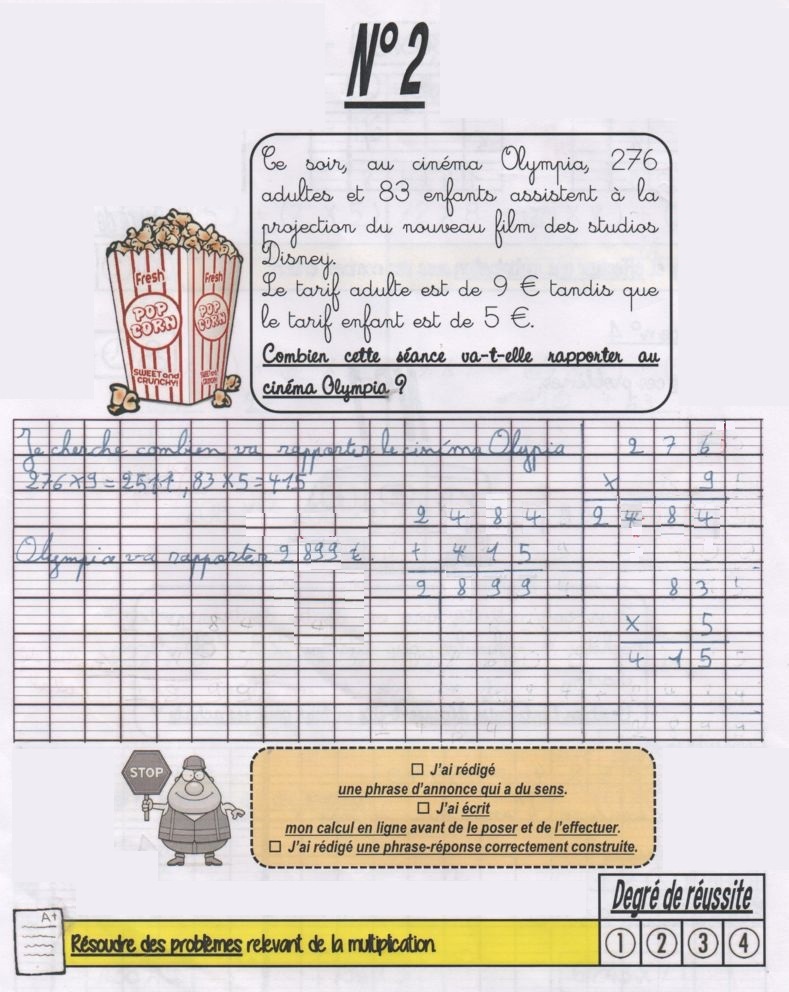 N° 2
Ce soir, au cinéma Olympia, 276
adultes et 83 enfants assistent à la
projection du nouveau film des studios
Disney.
Le tarif adulte est de 9 € tandis que
le tarif enfant est de 5 €.
Combien cette séance va-t-elle rapporter au
cinéma Olympia ?
Fresh
POP
CORN
SWEET and
CRUNCHY!
Fresh
POP
CORN
SWEET and
CRUNCHY!
Je cherche combien va rapporter le cinéma Olypia
276 x 9 = 2511, 83 x 5 = 415
Olympia va rapporter 2 899 €.
2 4 8 4
+ 4 1 5
2 8 9 9
2 7 6
x 9
2 4 8 4
8 3
x 5
4 1 5
STOP
☐ J'ai rédigé
une phrase d'annonce qui a du sens.
☐ J'ai écrit
mon calcul en ligne avant de le poser et de l'effectuer.
☐ J'ai rédigé une phrase-réponse correctement construite.
Degré de réussite
A+
Résoudre des problèmes relevant de la multiplication
1 2 3 4